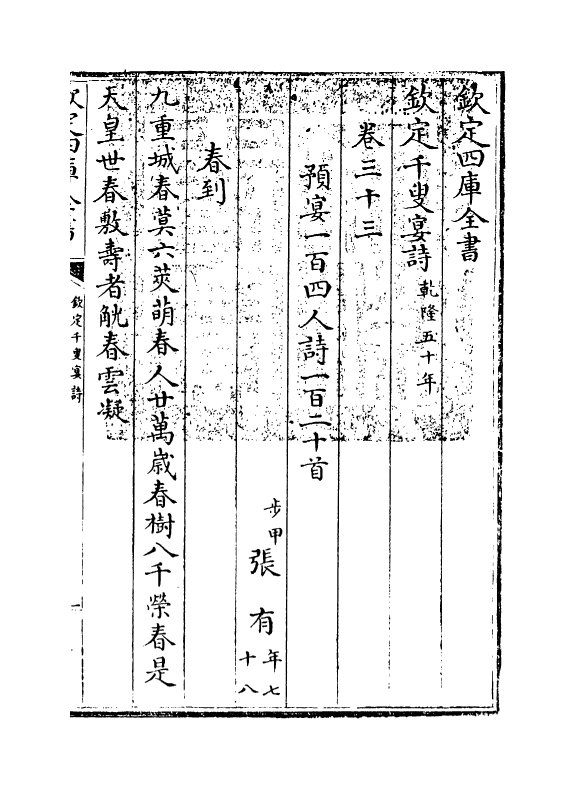 欽定四庫全書
欽定千叟宴詩 乾隆五十年
卷三十三
預宴一百四人詩一百二十首
步甲張有年七十八
春到
九重城春蓂六莢萌春人廿萬歲春樹八千榮春是
天皇世春敷壽者觥春雲凝
欽定四庫全書
欽定千叟宴詩
一